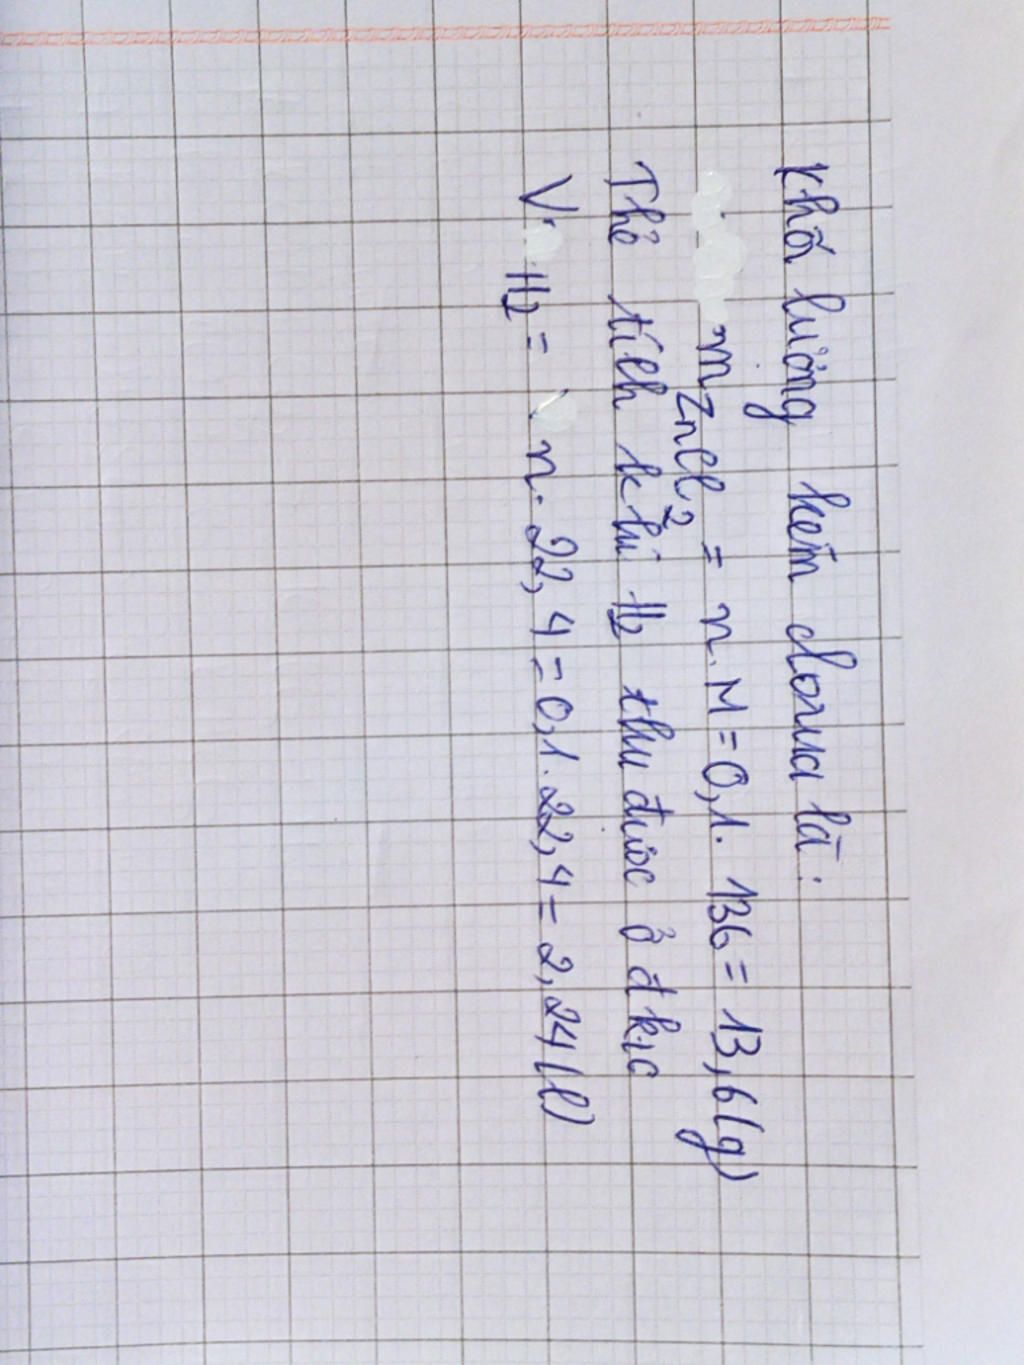 Khối lượng kẽm clorua là:
mZnCl2 = n.M = 0,1. 136 = 13,6(g)
Thể tích khí H2 thu được ở đktc
V H2 = n. 22,4 = 0,1. 22,4 = 2,24(l)